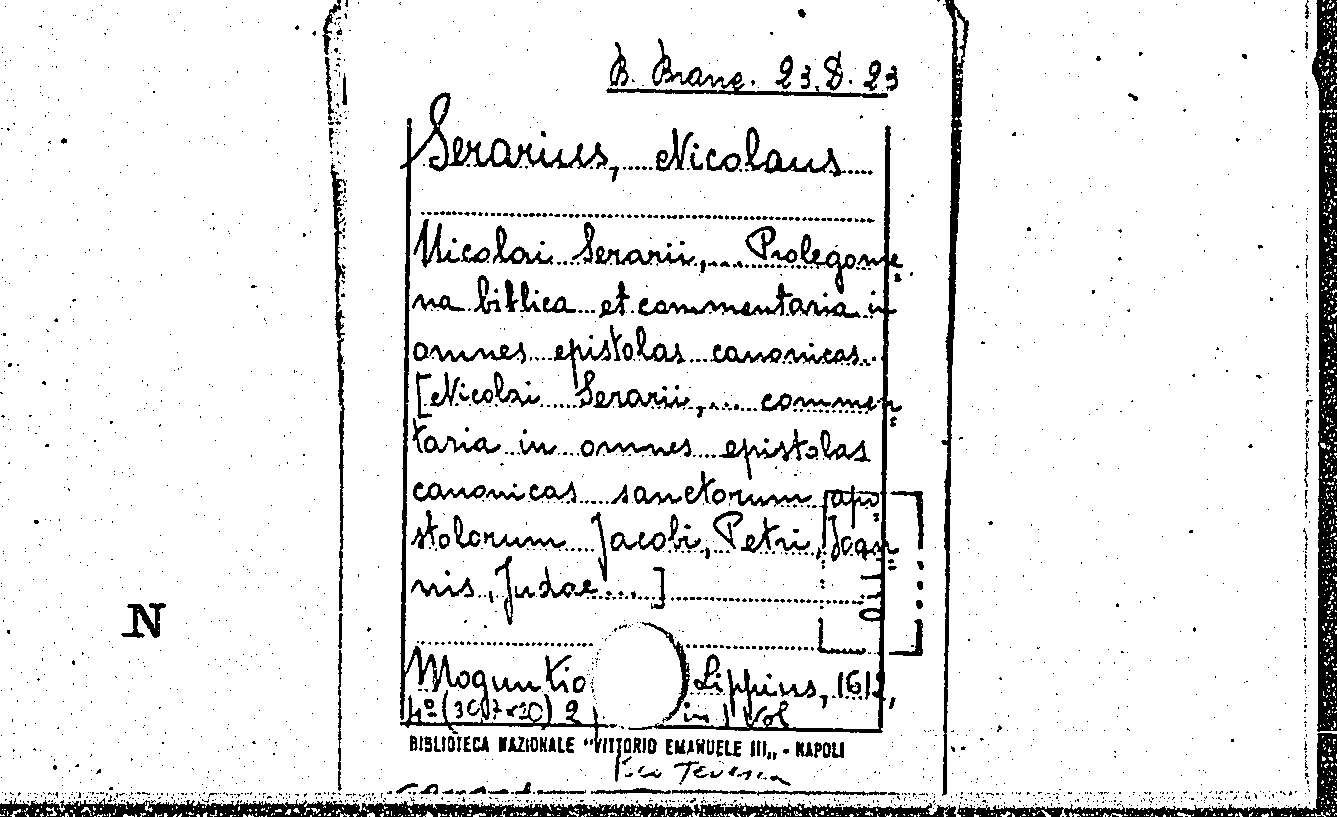 B. Branc. 23. D. 23
Serarius, Nicolaus
Nicolai Serarii, ... Prolegome
na biblica et commentaria in
omnes epistolas canonicas..
[Nicolai Serarii, ... commen
taria in omnes epistolas
canonicas sanctorum apo
stolorum Jacobi, Petri, Joan
nis, Judae ... ]
N
Moguntia Lippius, 1612,
4º ( ) 2 in 1 Vol
BIBLIOTECA NAZIONALE "VITTORIO EMANUELE III" - NAPOLI